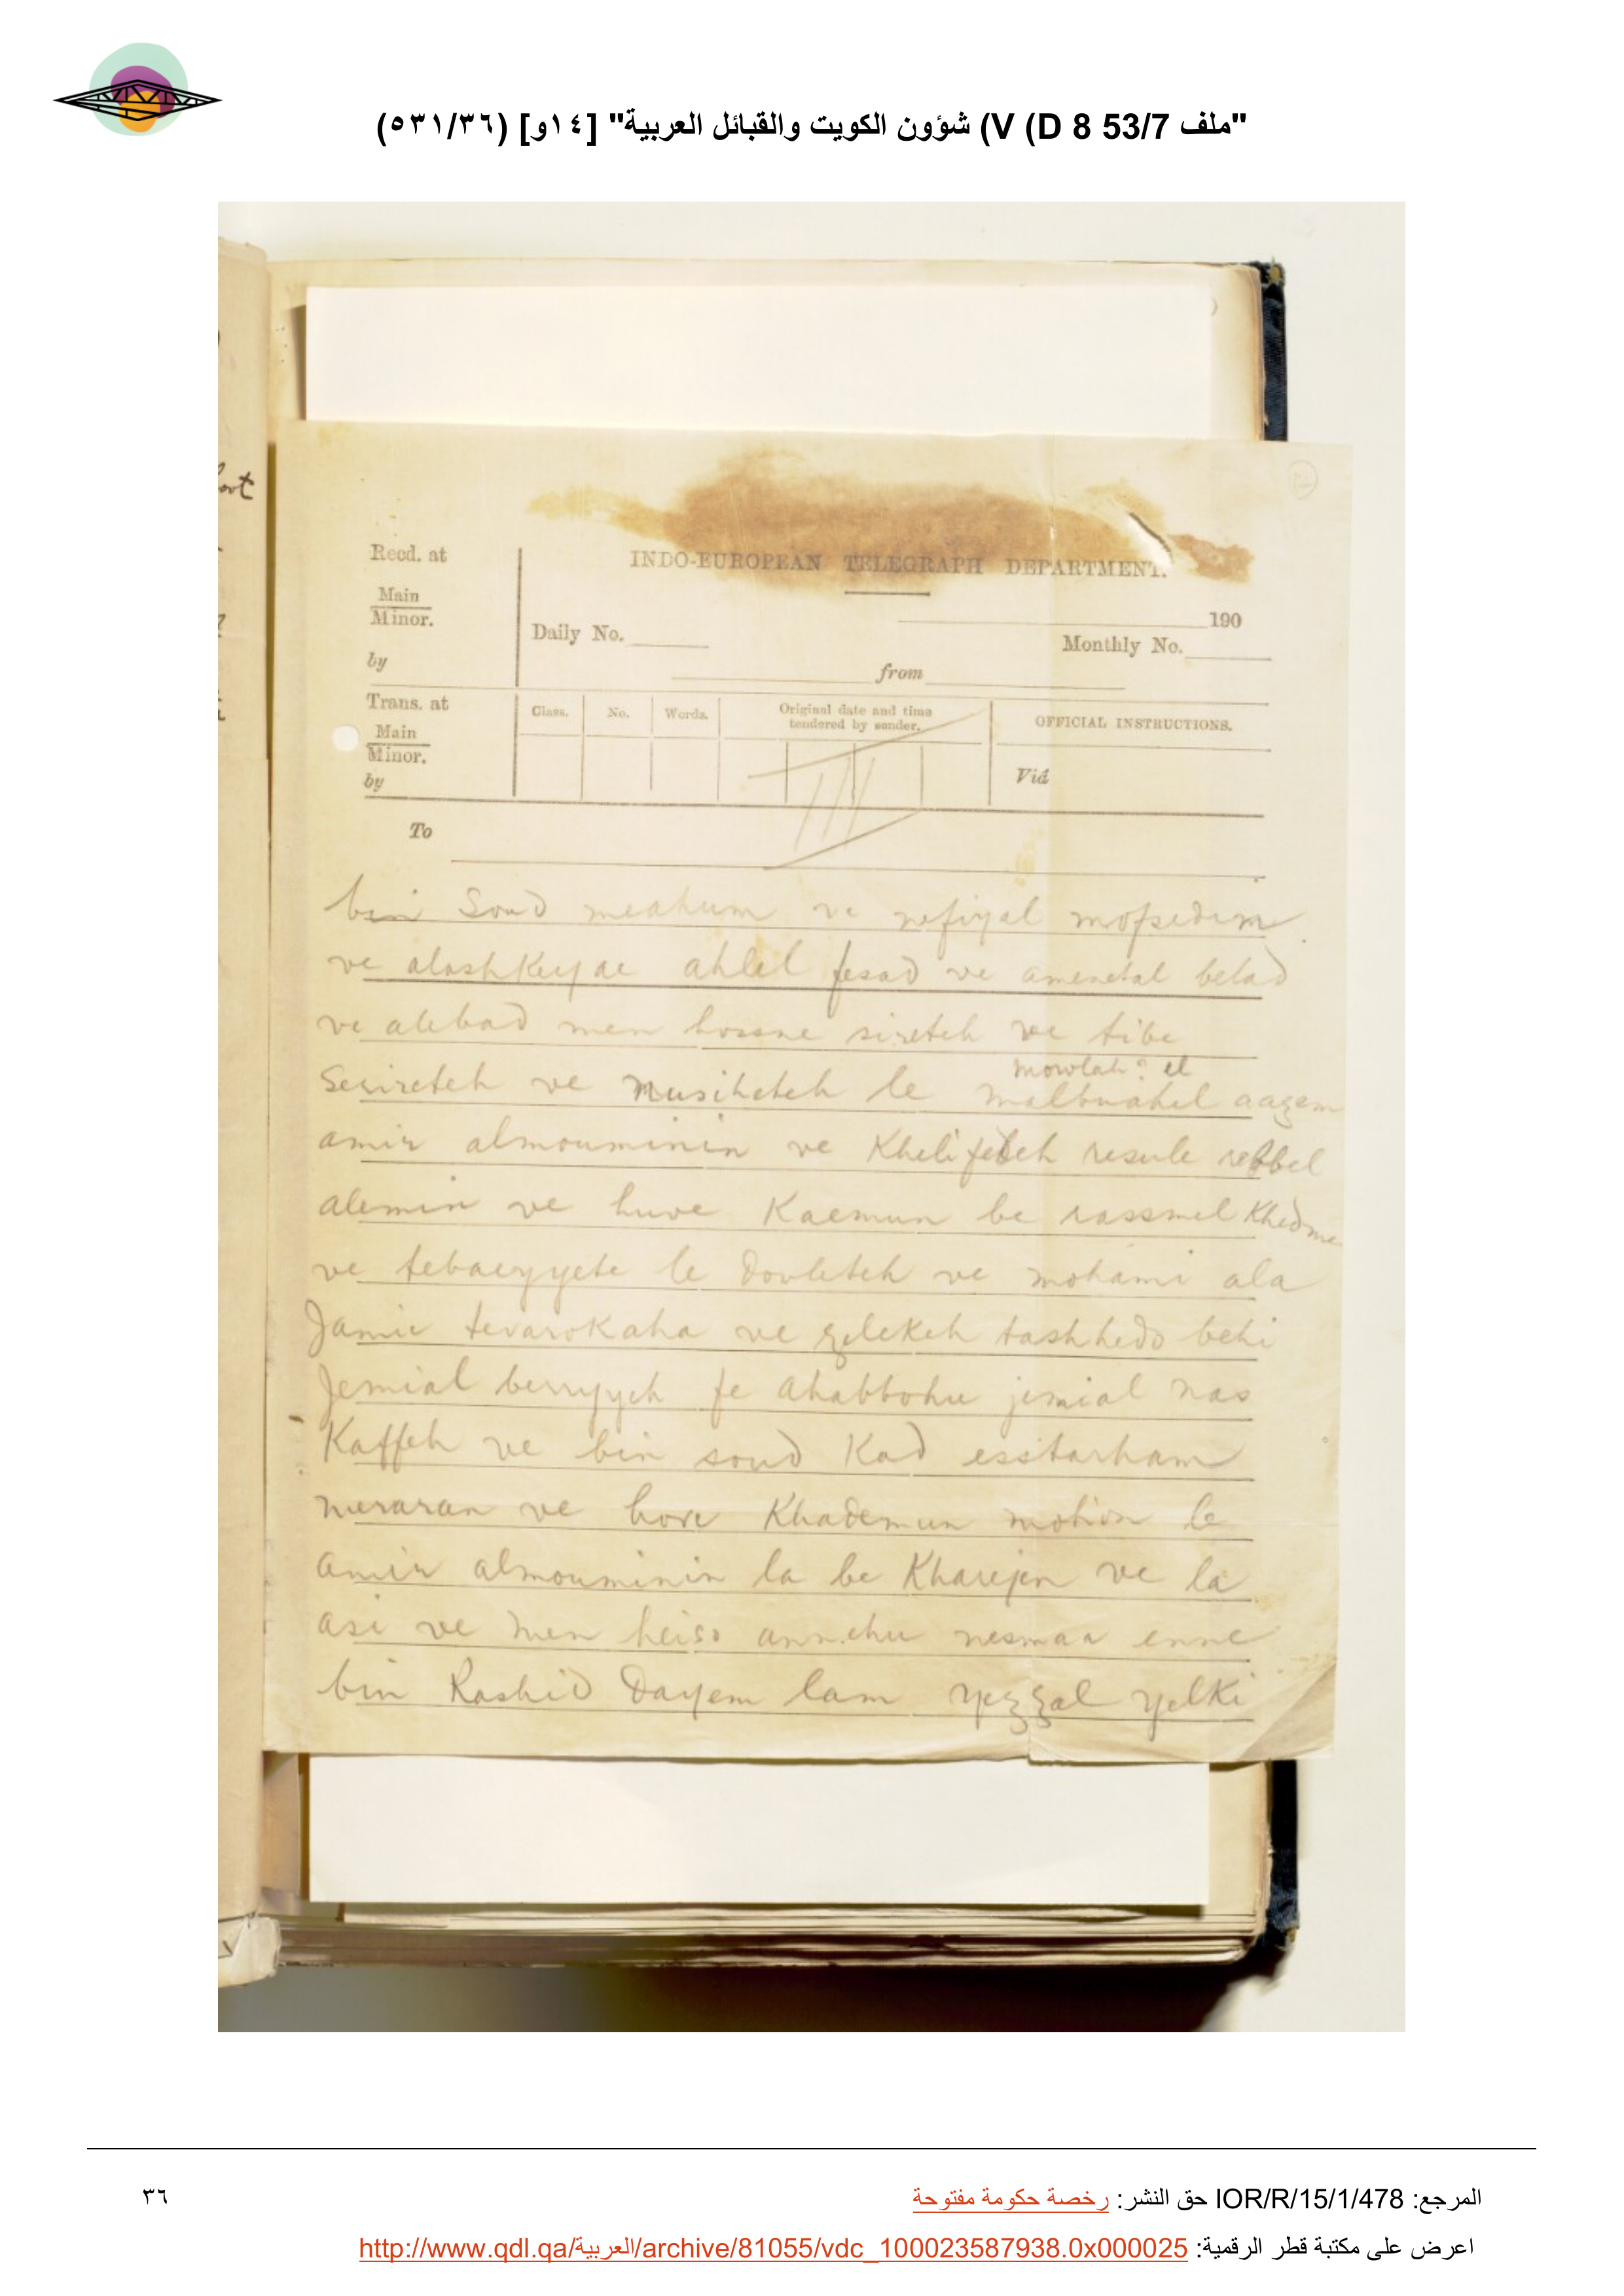 "ملف 53/7 D 8) V) شؤون الكويت والقبائل العربية" [١٤و] (٥٣١/٣٦)
Recd. at
Main
Minor.
by
INDO-EUROPEAN TELEGRAPH DEPARTMENT.
190
Daily No.
Monthly No.
from
Trans. at
Main
Minor.
by
Class.
No.
Words.
Original date and time
tendered by sender.
OFFICIAL INSTRUCTIONS.
Viâ
To
bin Soud meahum ve nefiyal mofsedim
ve alashkeyae ahlel fesad ve amenetal belad
ve alebad men hossne sireteh ve tibe
mowlah? el
serireteh ve nusiheteh le aazem
amir almouminin ve Khelifeteh resule rebbel
alemin ve huve Kaemun be rassmel Khedme
ve tebaeyyete le dovleteh ve mohami ala
Jamie tevarokaha ve zelekeh tashhedo behi
Jemial berryyeh fe ahabbohu jemial nas
Kaffeh ve bin soud Kad esstarham
meraran ve hove Khademun le
amir almouminin la be Kharejen ve la
asi ve men heiso annehu nesmaa enne
bin Rashid Dayem lam yezzal yelki
المرجع: IOR/R/15/1/478 حق النشر: رخصة حكومة مفتوحة
٣٦
اعرض على مكتبة قطر الرقمية: http://www.qdl.qa/العربية/archive/81055/vdc_100023587938.0x000025